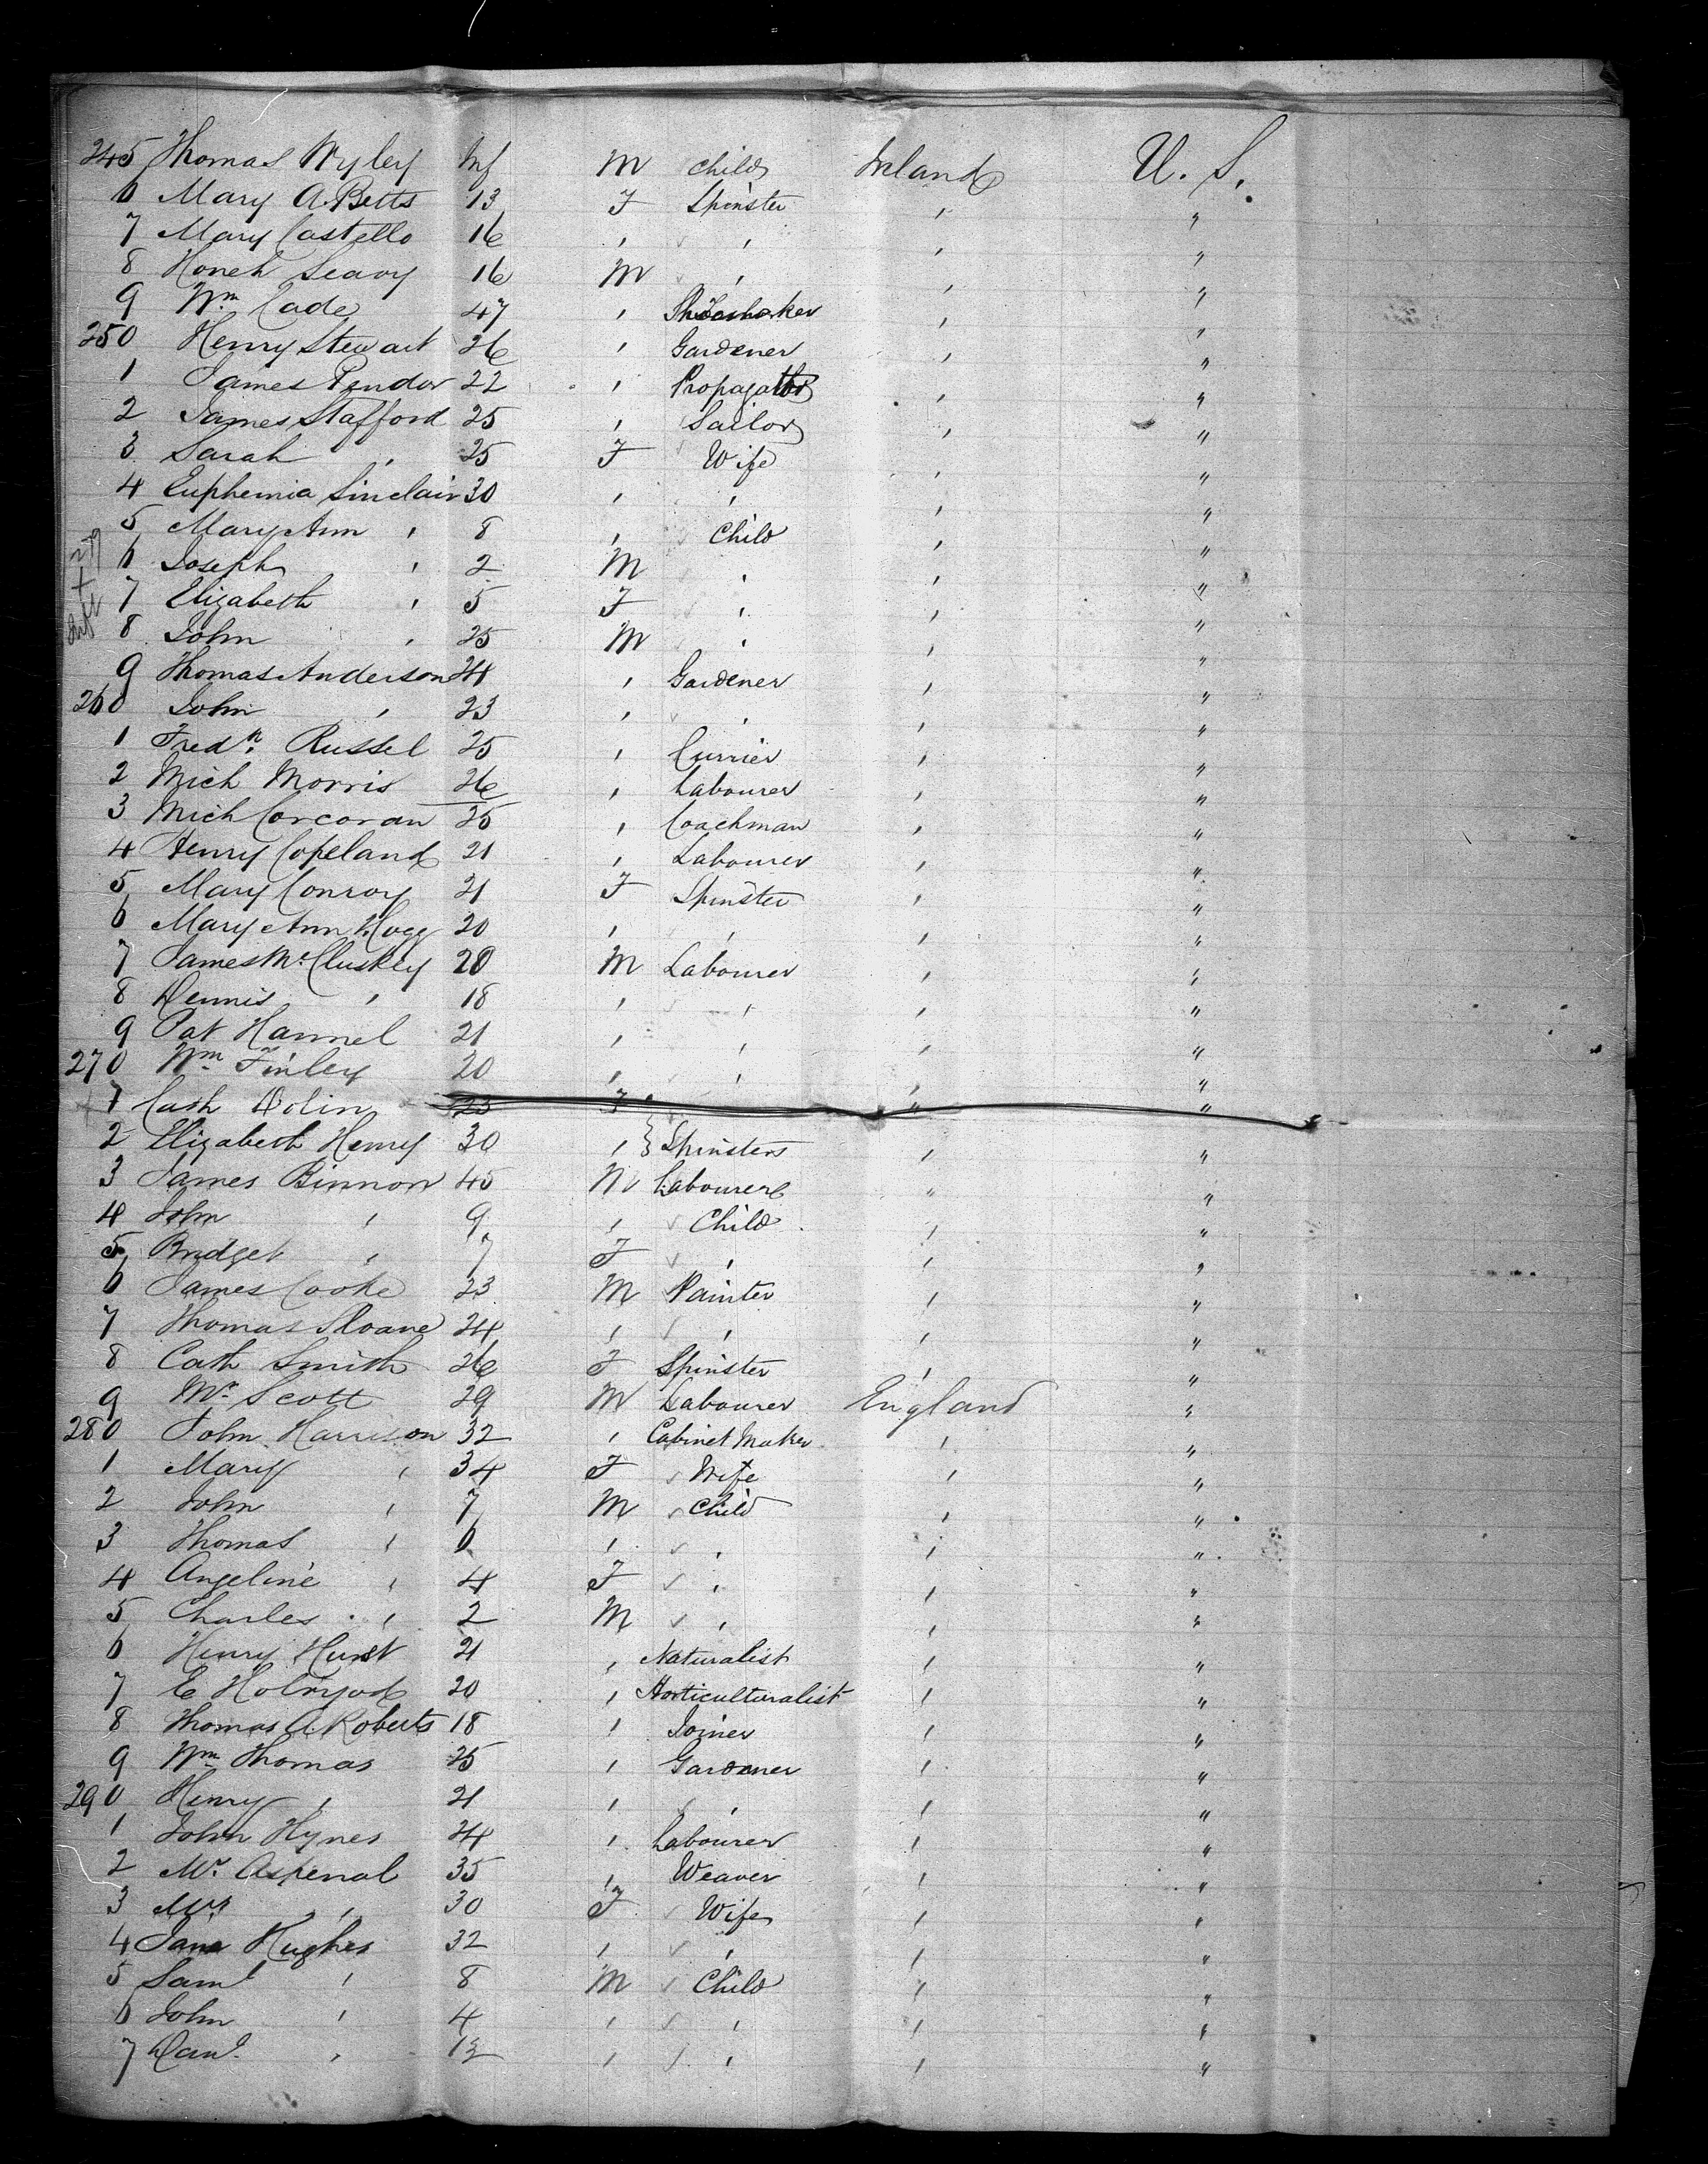 245 Thomas Wyley Inf M Child Ireland U. S.
6 Mary A. Betts 13 F Spinster , "
7 Mary Castello 16 , , , "
8 Honeh Leavy 16 M , , "
9 Wm Cade 47 , Shoemaker , "
250 Henry Stewart 26 , Gardener , "
1 James Pendor 22 , Propagator , "
2 James Stafford 25 , Sailor , "
3 Sarah , 25 F Wife , "
4 Euphemia Sinclair 30 , , , "
5 Mary Ann , 8 , Child , "
6 Joseph , 2 M , , "
7 Elizabeth , 5 F , , "
8 John , 25 M , , "
9 Thomas Anderson 24 , Gardener , "
260 John , 23 , , , "
1 Fredk Russel 25 , Currier , "
2 Mich Morris 26 , Labourer , "
3 Mich Corcoran 25 , Coachman , "
4 Henry Copeland 21 , Labourer , "
5 Mary Conroy 21 F Spinster , "
6 Mary Ann Hogg 20 , , , "
7 James McCluskey 20 M Labourer , "
8 Dennis , 18 , , , "
9 Pat Hannel 21 , , , "
270 Wm Finley 20 , , , "
1 Cath Dolin 23 F " "
2 Elizabeth Henry 30 , Spinsters , "
3 James Binnon 45 M Labourer " "
4 John , 9 , Child , "
5 Bridget , 7 F , , "
6 James Cooke 23 M Painter , "
7 Thomas Sloane 24 , , , "
8 Cath Smith 26 F Spinster , "
9 Mr Scott 29 M Labourer England "
280 John Harrison 32 , Cabinet Maker , "
1 Mary , 34 F Wife , "
2 John , 7 M Child , "
3 Thomas , 6 , , , "
4 Angeline , 4 F , , "
5 Charles , 2 M , , "
6 Henry Hurst 21 , Naturalist , "
7 E Holryode 20 , Horticulturalist , "
8 Thomas A. Roberts 18 , Joiner , "
9 Wm Thomas 25 , Gardener , "
290 Henry , 21 , , , "
1 John Hynes 24 , Labourer , "
2 Mr Aspenal 35 , Weaver , "
3 Mrs , 30 F Wife , "
4 Jane Hughes 32 , , , "
5 Saml , 8 M Child , "
6 John , 4 , , , "
7 Danl , 1½ , , , "